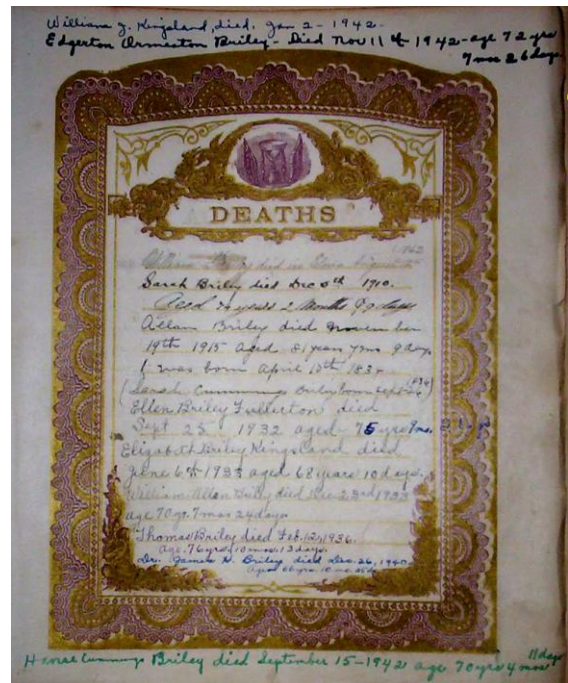 William J. Kingsland, died. Jan 2 - 1942 -
Edgerton Ormeston Briley - Died Nov 11th 1942 - age 72 yrs
7 mos 26 days
DEATHS
William Briley died in
Sarah Briley died Dec 1910.
Aged years 2 Months 9 days
Allan Briley died November
19th 1915 aged 81 years 7 mo 9 days
I was born April 10th 1834
(Sarah Cummings Briley born Sept
Ellen Briley Fullerton died
Sept 25 1932 aged 75 yrs 9 mo.
Elizabeth Briley Kingsland died
June 6th aged 68 years 10 days.
William Allan Briley died Dec. 23rd 1933
age 70 yr. 7 mos 24 days.
Thomas Briley died Feb. 12, 1936.
Age. 76 yrs 10 mos. 13 days.
Dr. James H. Briley died Dec. 26, 1940
Age 66 yrs. 10 mo.
Cummings Briley died September 15 - 1942 age 70 yrs 4 mos
11 days